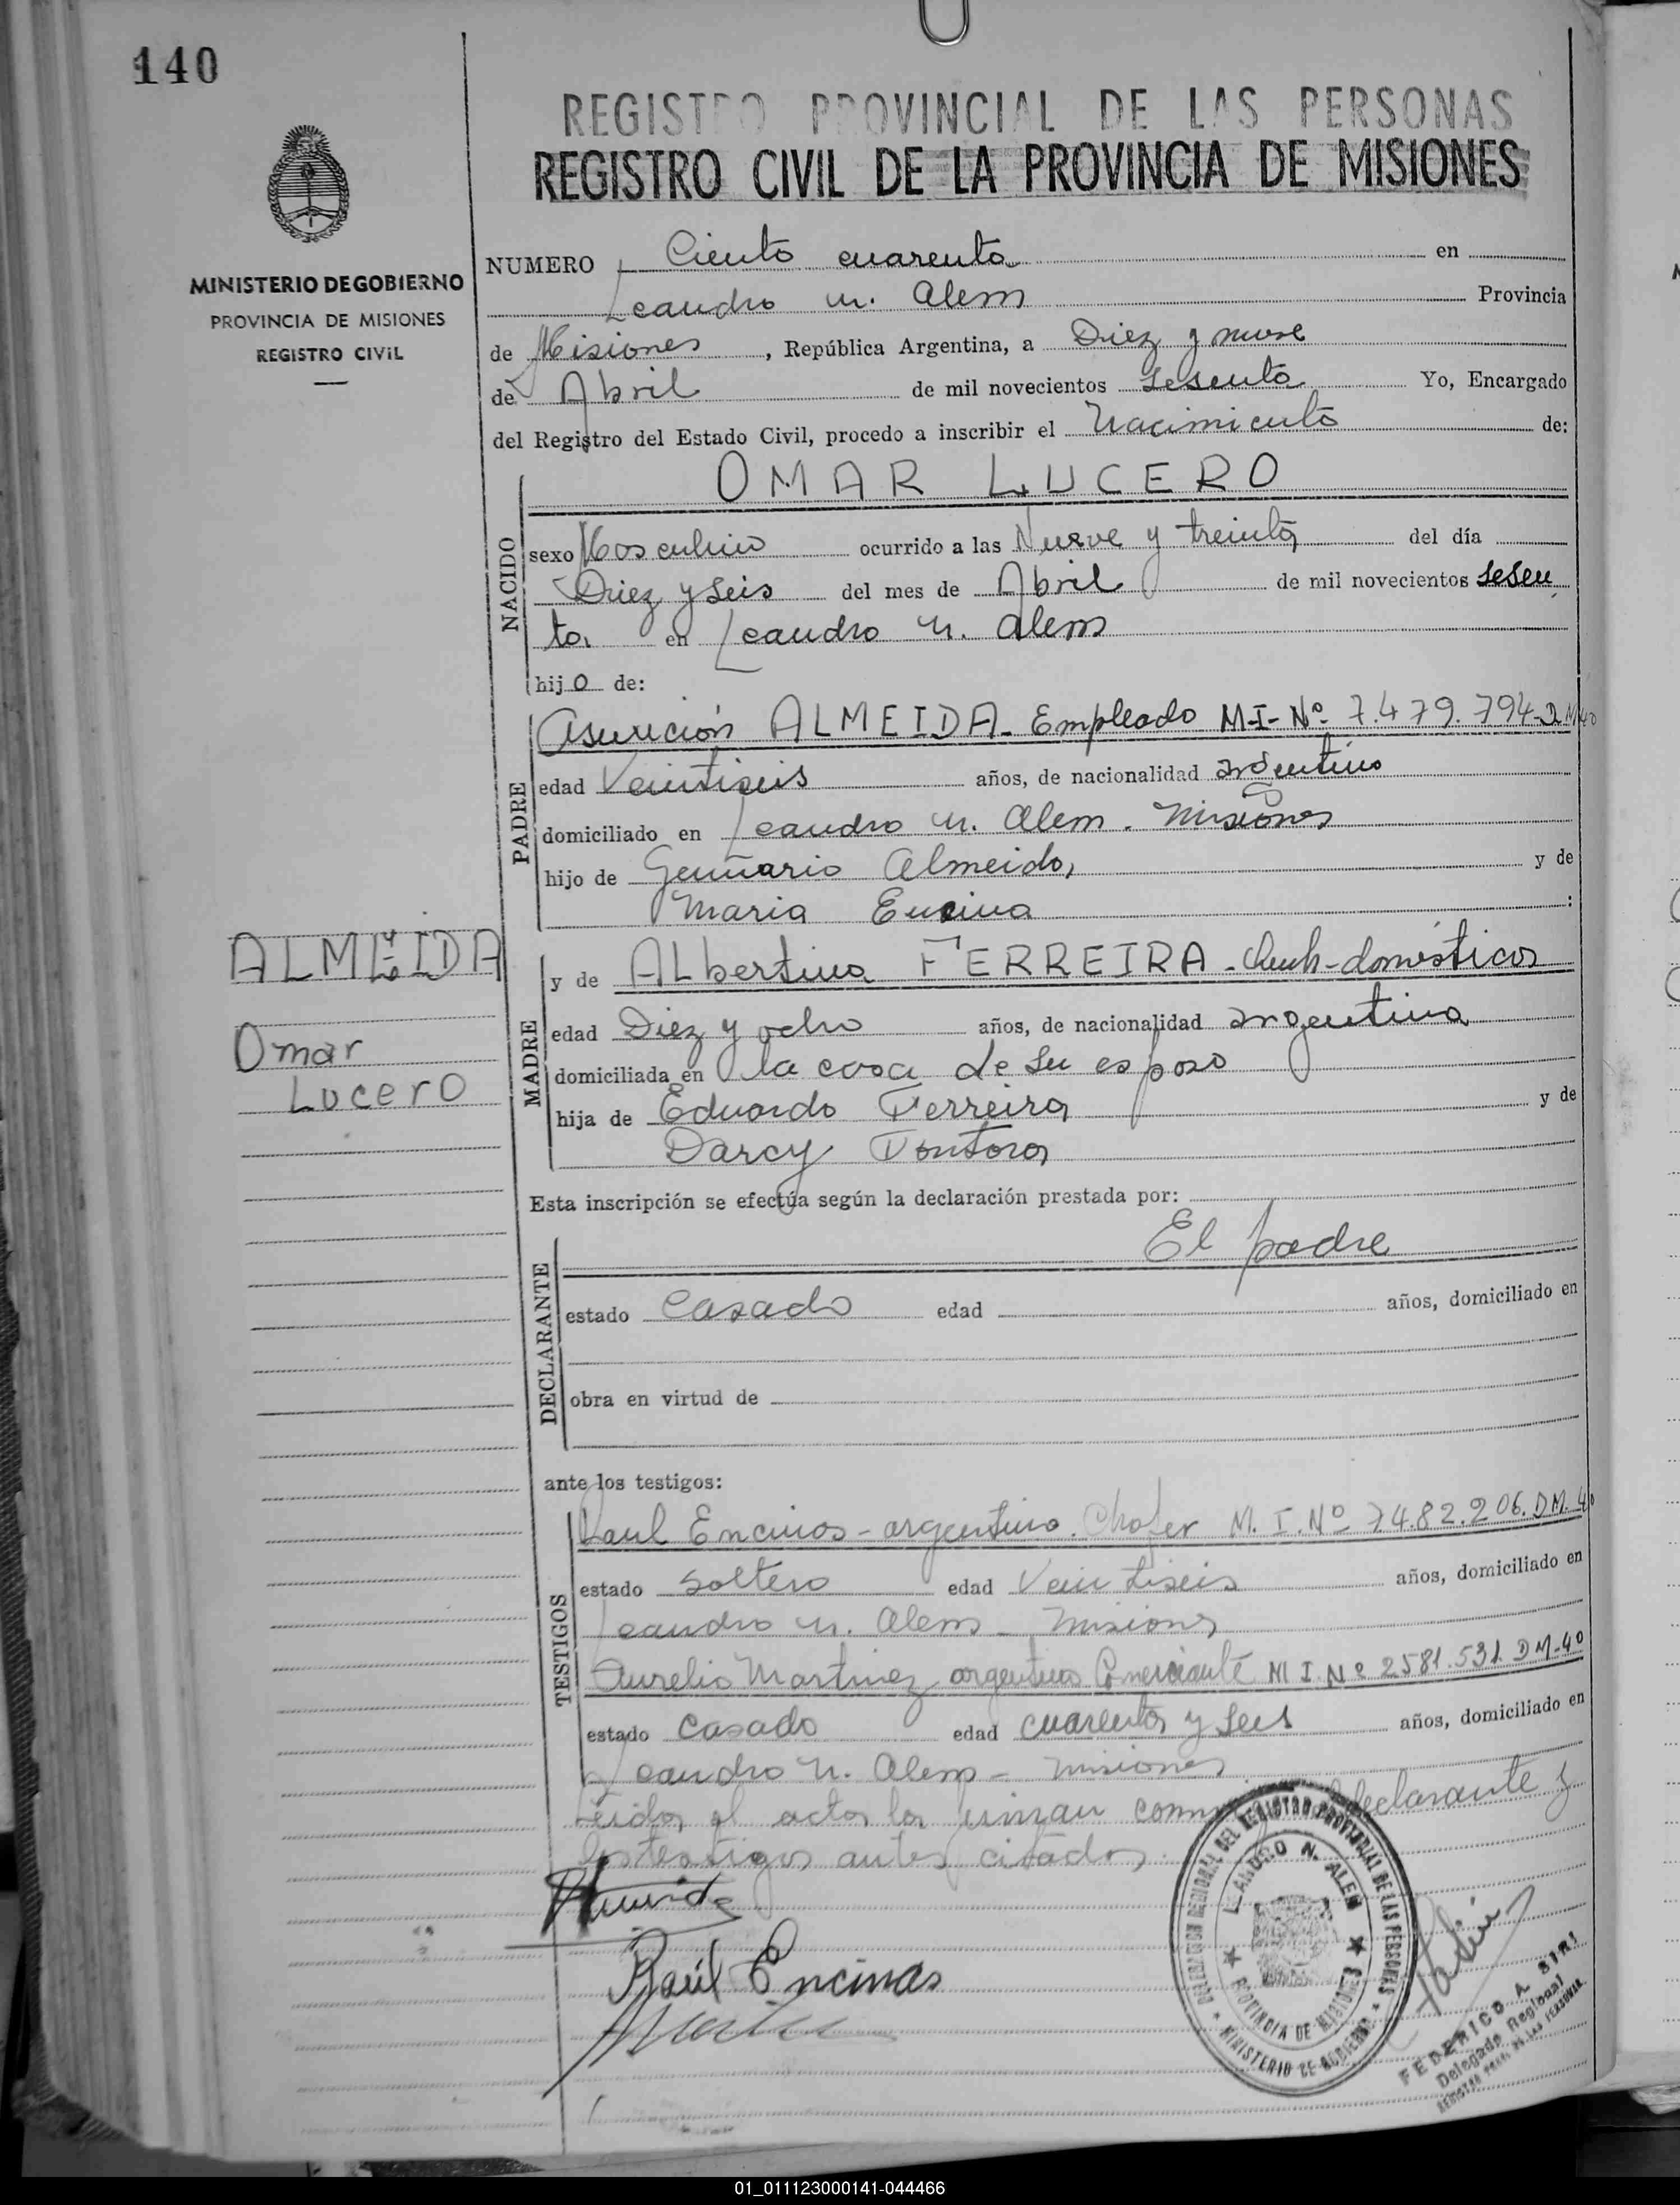 140
REGISTRO PROVINCIAL DE LAS PERSONAS
REGISTRO CIVIL DE LA PROVINCIA DE MISIONES
MINISTERIO DE GOBIERNO
PROVINCIA DE MISIONES
REGISTRO CIVIL
NUMERO Ciento cuarenta en
Leandro N. Alem Provincia
de Misiones, República Argentina, a Diez y nueve
de Abril de mil novecientos sesenta Yo, Encargado
del Registro del Estado Civil, procedo a inscribir el Nacimiento de:
OMAR LUCERO
NACIDO
sexo Masculino ocurrido a las Nueve y treinta del día
Diez y seis del mes de Abril de mil novecientos sesen
ta en Leandro N. Alem
hijo de:
PADRE
Asunción ALMEIDA - Empleado M-I-Nº 7.479.794-D M 40
edad Veintiseis años, de nacionalidad argentino
domiciliado en Leandro N. Alem. Misiones
hijo de Almeida y de
Maria Encina :
ALMEIDA
Omar
Lucero
MADRE
y de Albertina FERREIRA - domésticos
edad Diez y ocho años, de nacionalidad argentina
domiciliada en la casa de su esposo
hija de Eduardo Ferreira y de
Darcy
Esta inscripción se efectúa según la declaración prestada por:
El padre
DECLARANTE
estado casado edad años, domiciliado en
obra en virtud de
ante los testigos:
TESTIGOS
Raul Encinas - argentino. Chofer M. I. Nº 74.82.206. D M. 40
estado soltero edad Veintiseis años, domiciliado en
Leandro N. Alem - Misiones
Aurelio Martinez argentino Comerciante M I. Nº 2581.531 D M-40
estado casado edad cuarenta y seis años, domiciliado en
Leandro N. Alem - Misiones
Leida el acta la firman declarante y
los testigos antes citados.
Raúl Encinas
DELEGACION REGIONAL DEL REGISTRO PROVINCIAL DE LAS PERSONAS
LEANDRO N. ALEM
PROVINCIA DE MISIONES
MINISTERIO DE GOBIERNO
FEDERICO A. SIRI
Delegado Regional
REGISTRO PROV. DE LAS PERSONAS
01_011123000141-044466